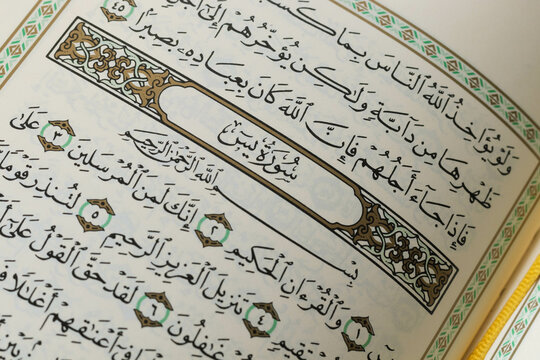 وَلَوْ يُؤَاخِذُ ٱللَّهُ ٱلنَّاسَ بِمَا
ظَهْرِهَا مِن دَآبَّةٍ وَلَٰكِن يُؤَخِّرُهُمْ إِلَىٰٓ أَجَلٍ
فَإِذَا جَآءَ أَجَلُهُمْ فَإِنَّ ٱللَّهَ كَانَ بِعِبَادِهِۦ بَصِيرًۢا ٤٥
سُورَةُ يسٓ
بِسْمِ ٱللَّهِ ٱلرَّحْمَٰنِ ٱلرَّحِيمِ
١ وَٱلْقُرْءَانِ ٱلْحَكِيمِ ٢ إِنَّكَ لَمِنَ ٱلْمُرْسَلِينَ ٣ عَلَىٰ
٤ تَنزِيلَ ٱلْعَزِيزِ ٱلرَّحِيمِ ٥ لِتُنذِرَ قَوْمًا
غَٰفِلُونَ ٦ لَقَدْ حَقَّ ٱلْقَوْلُ عَلَىٰٓ
أَعْنَٰقِهِمْ أَغْلَٰلًا